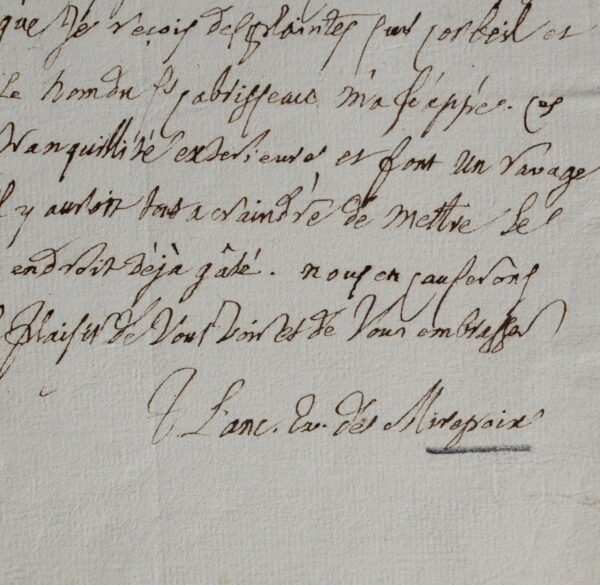 que Je reçois des plaintes sur corbeil et
Le nom du Sr cabrisseau m'a frappé. ces
tranquillité exterieure et font un ravage
il y auroit tout a craindre de mettre le
endroit déjà gâté. nous en causerons
plaisir de vous voir et de vous embrasser
† L'anc. Ev. de Mirepoix